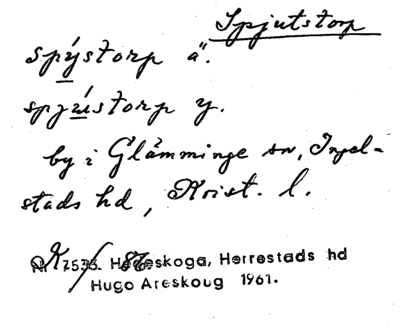 Spjutstorp
spýstorp ä.
spjústorp y.
by i Glämminge sn, Ingel-
stads hd, Krist. l.
Herrestads hd
Hugo Areskoug 1961.